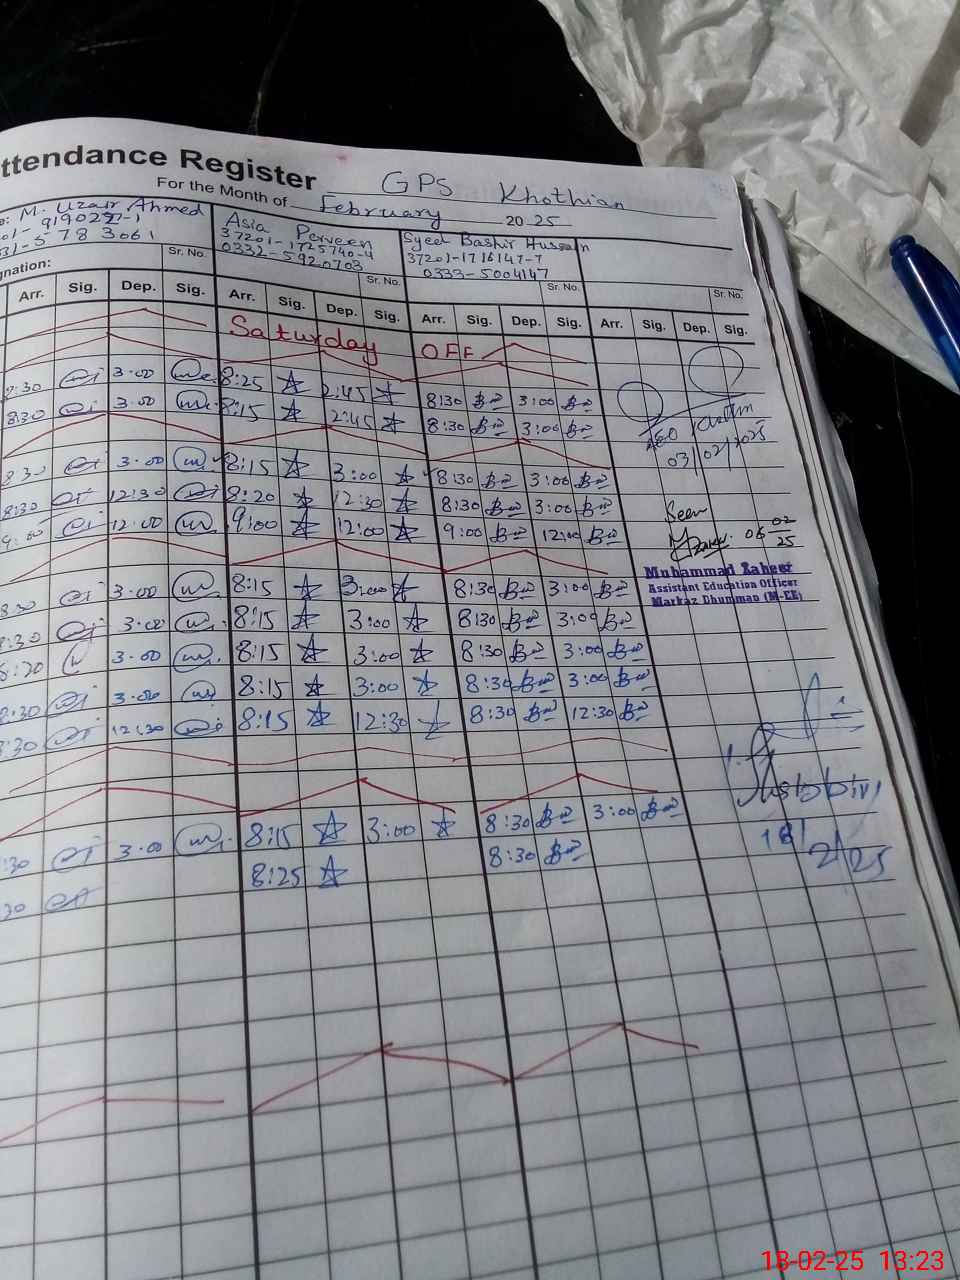 ttendance Register GPS Khothian
For the Month of February 2025
M. Uzair Ahmed
Asia Perveen
37201-1725740-4
0332-5920703
Syed Bashir Hussain
37201-1716147-7
0333-5004147
gnation:
Sr. No. Sr. No. Sr. No. Sr. No.
Arr. Sig. Dep. Sig. Arr. Sig. Dep. Sig. Arr. Sig. Dep. Sig. Arr. Sig. Dep. Sig.
Saturday OFF
8:30 3:00 8:25 2:45 8:30 3:00
8:30 3:00 8:15 2:45 8:30 3:00
03/02/2025
8:30 3:00 8:15 3:00 8:30 3:00
8:30 12:30 8:20 12:30 8:30 3:00
9:00 12:00 9:00 12:00 9:00 12:00
Seen
06 02 25
Muhammad Zaheer
Assistant Education Officer
Markaz Dhumman (M-EE)
8:30 3:00 8:15 3:00 8:30 3:00
8:30 3:00 8:15 3:00 8:30 3:00
8:30 3:00 8:15 3:00 8:30 3:00
8:30 3:00 8:15 3:00 8:30 3:00
8:30 12:30 8:15 12:30 8:30 12:30
:30 3:00 8:15 3:00 8:30 3:00
30 8:25 8:30
18/2/25
18-02-25 13:23